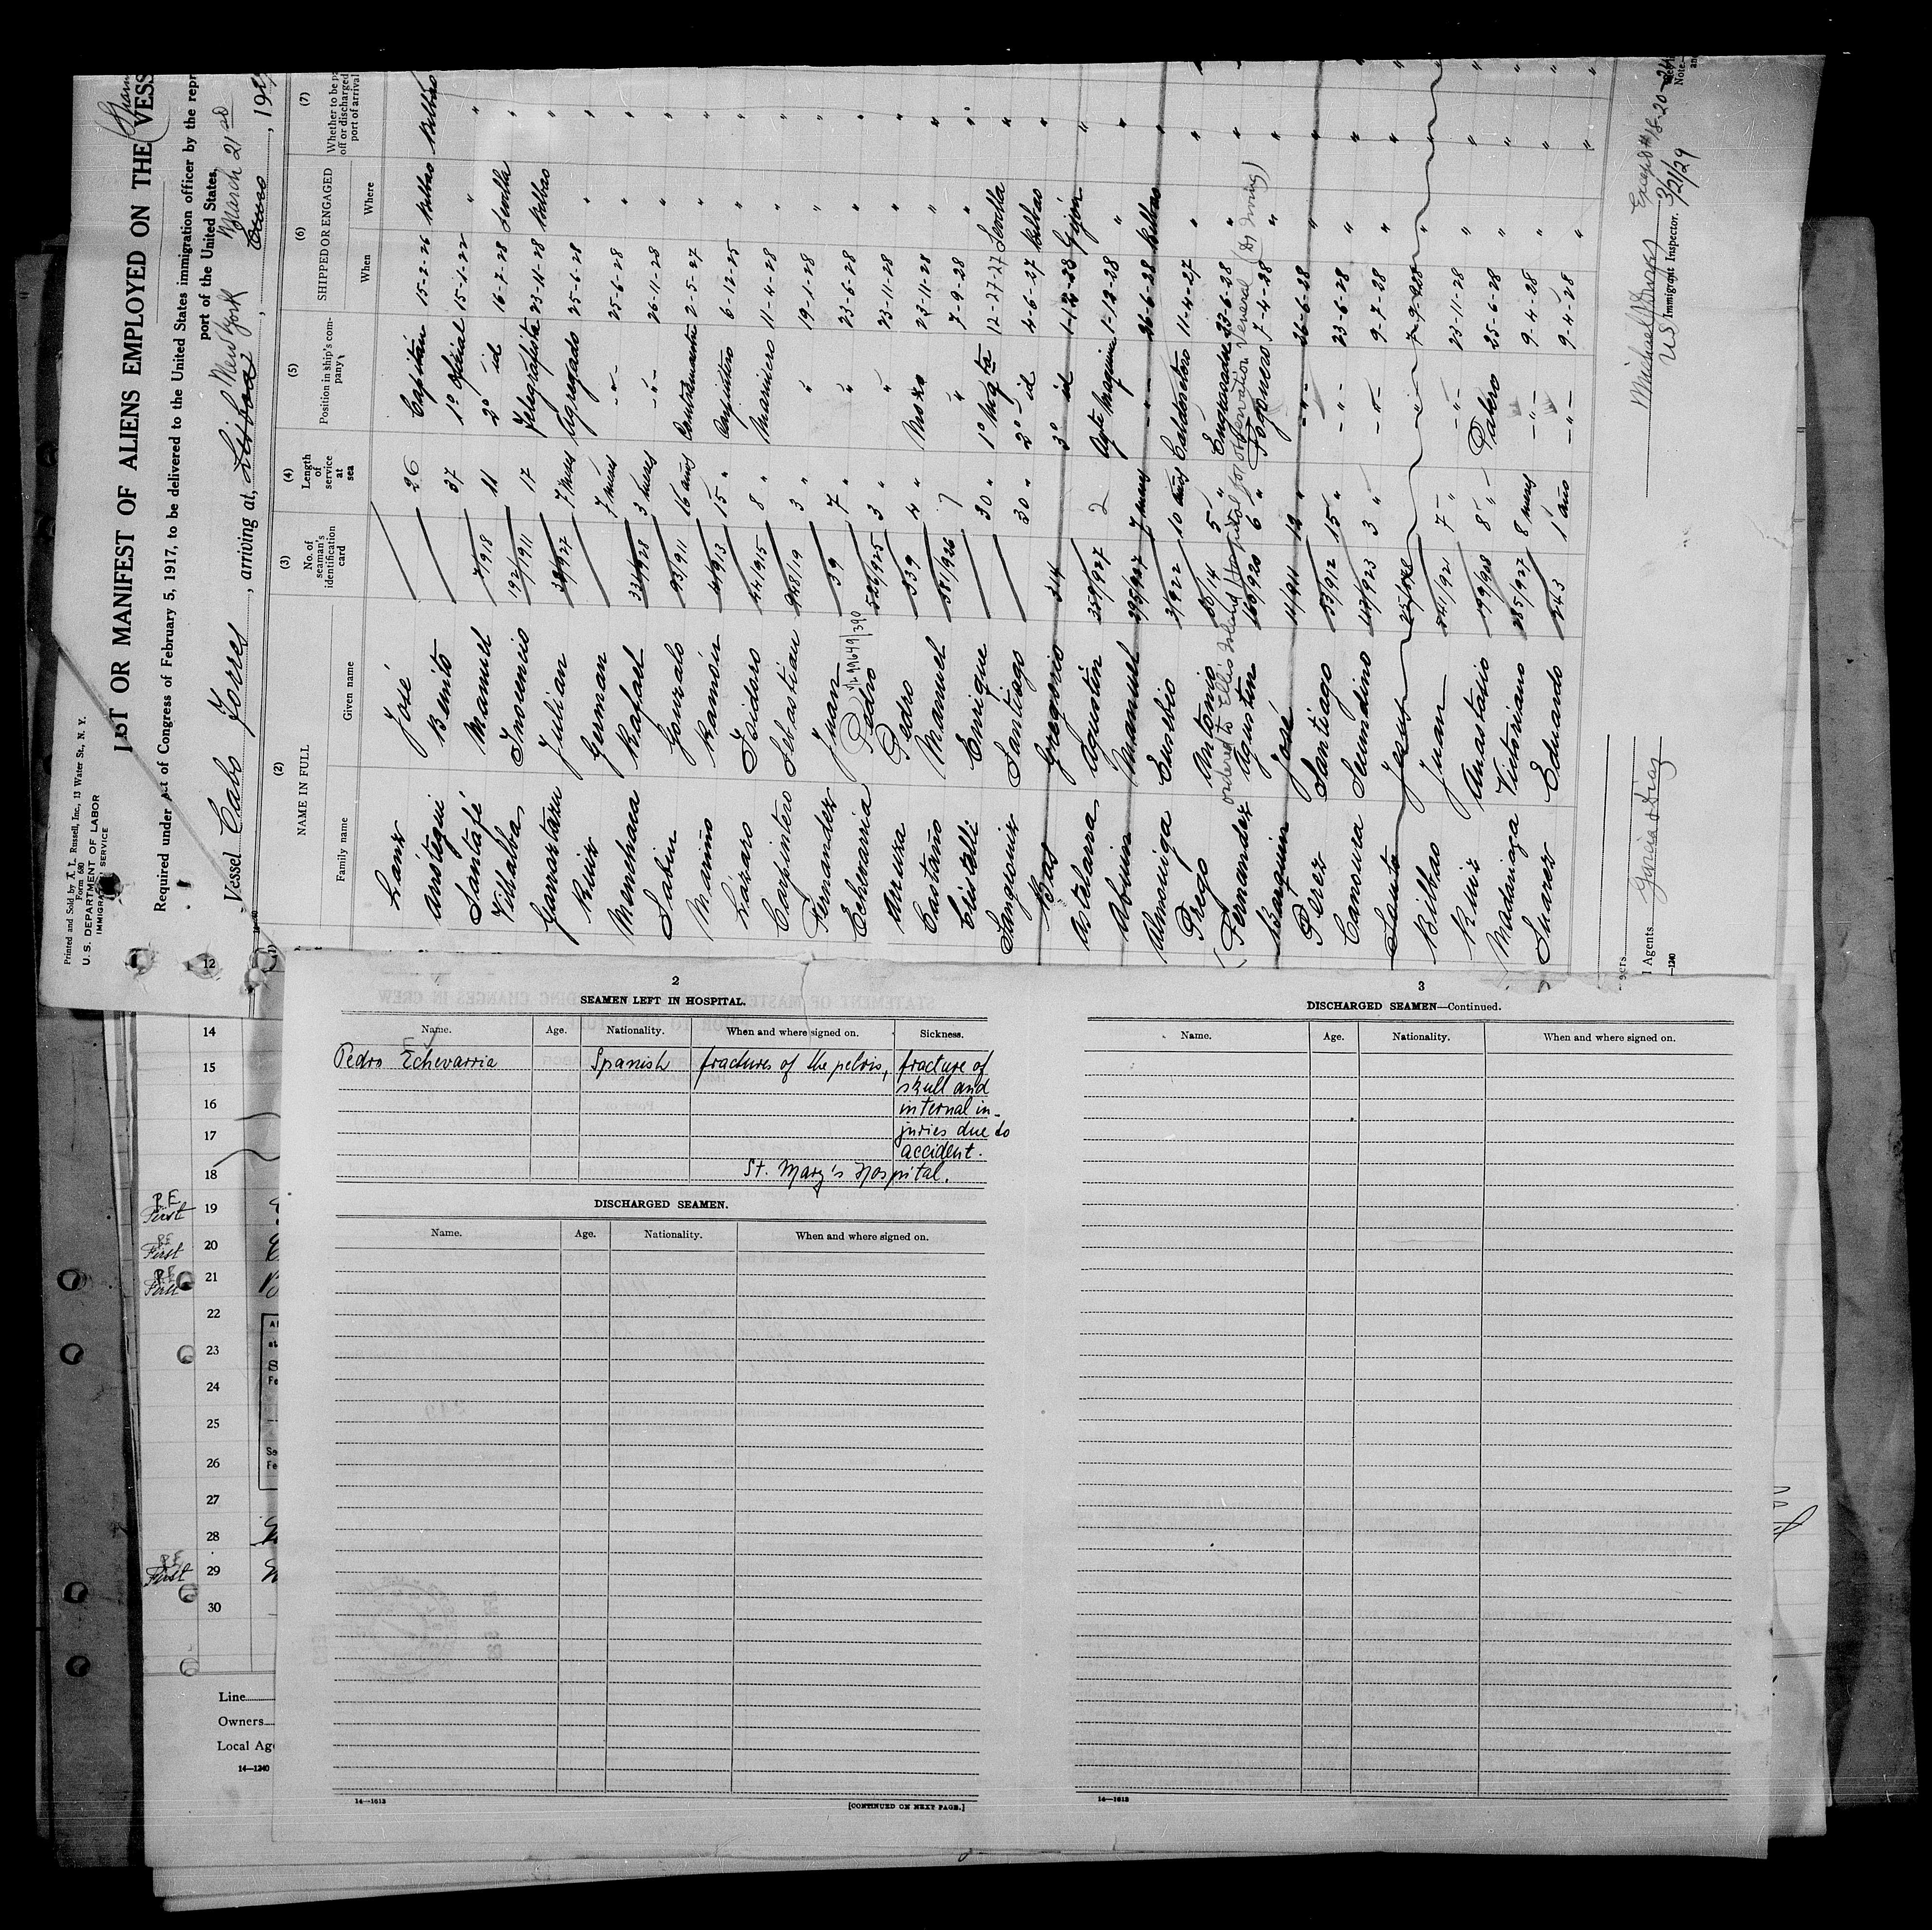 Printed and Sold by A. T. Russell, Inc., 13 Water St., N. Y.
Form 680
U. S. DEPARTMENT OF LABOR
IMMIGRATION SERVICE
LIST OR MANIFEST OF ALIENS EMPLOYED ON THE VESS
Required under Act of Congress of February 5, 1917, to be delivered to the United States immigration officer by the repr
port of the United States,
Vessel Cabo Torres, arriving at, New York March 21, 192
(2) NAME IN FULL (3) No. of seaman's identification card (4) Length of service at sea (5) Position in ship's company (6) SHIPPED OR ENGAGED (7) Whether to be p off or discharged port of arrival
Family name Given name When Where
Sanz José 26 Capitán 15-2-26 Bilbao Bilbao
Aristegui Benito 37 1º oficial 15-1-22 " "
Santafé Manuel 7/918 11 2º id 16-7-28 Sevilla "
Villalba Inocencio 192/911 17 Telegrafista 23-11-28 Bilbao "
Julian 7 meses Agregado 25-6-28 " "
Ruiz German 7 meses -"- 25-6-28 " "
Menchaca Rafael 3 meses -"- 26-11-28 " "
Sabin Gonzalo 93/911 16 años Contramaestre 2-5-27 " "
Mariño Ramón 15 " 6-12-25 " "
Lázaro Isidoro 44/915 8 " Marinero 11-4-28 " "
Carpintero Sebastian 3 " " 19-1-28 " "
Fernandez Juan 39 7 " " 23-6-28 " "
Echevarria Pedro 526/925 3 " " 23-11-28 " "
Arruza Pedro 339 4 " Mozo 23-11-28 " "
Castaño Manuel 381/926 7 " 7-9-28 " "
Enrique 30 " 1º Maqta 12-27-27 Sevilla "
Sangroniz Santiago 30 " 2º id 4-6-27 Bilbao "
Bas Gregorio 34 3º id 1-12-28 Gijón "
Astelarra Agustín 359/927 2 1-12-28 " "
Aboina Manuel 395/927 7 meses -"- 26-6-28 Bilbao "
Almoniga Eusebio 3/922 10 años Calderetero 11-4-27 " "
Prego Antonio 5 " Engrasador 23-6-28 " "
ordered to Ellis Island Hospital for observation Veneral (Dr Irving)
Fernandez Agustín 160/920 6 " Fogonero 7-4-28 " "
Barquin José 11/911 12 " -"- 26-6-28 " "
Perez Santiago 53/912 15 " -"- 23-6-28 " "
Camoura Secundino 3 " -"- 9-7-28 " "
Santo Jesus -"- 7-9-28 " "
Bilbao Juan 7 " -"- 23-11-28 " "
Ruiz Anastasio 8 " Palero 25-6-28 " "
Madariaga Victoriano 285/927 8 meses -"- 9-4-28 " "
Suarez Eduardo 243 1 año -"- 9-4-28 " "
l Agents Garcia & Diaz
—1240
Except # 18-20-24
3/21/29
U S Immigrant Inspector.
Note.—
12
14
15
16
17
18
19
20
21
22
23
24
25
26
27
28
29
30
P.F.
First
First
P.F.
First
First
Line
Owners
Local Age
14—1240
2
SEAMEN LEFT IN HOSPITAL.
Name. Age. Nationality. When and where signed on. Sickness.
Pedro Echevarria Spanish fractures of the pelvis, fracture of
skull and
internal in-
juries due to
accident.
St. Mary's Hospital.
DISCHARGED SEAMEN.
Name. Age. Nationality. When and where signed on.
14—1613
[CONTINUED ON NEXT PAGE.]
3
DISCHARGED SEAMEN—Continued.
Name. Age. Nationality. When and where signed on.
14—1613